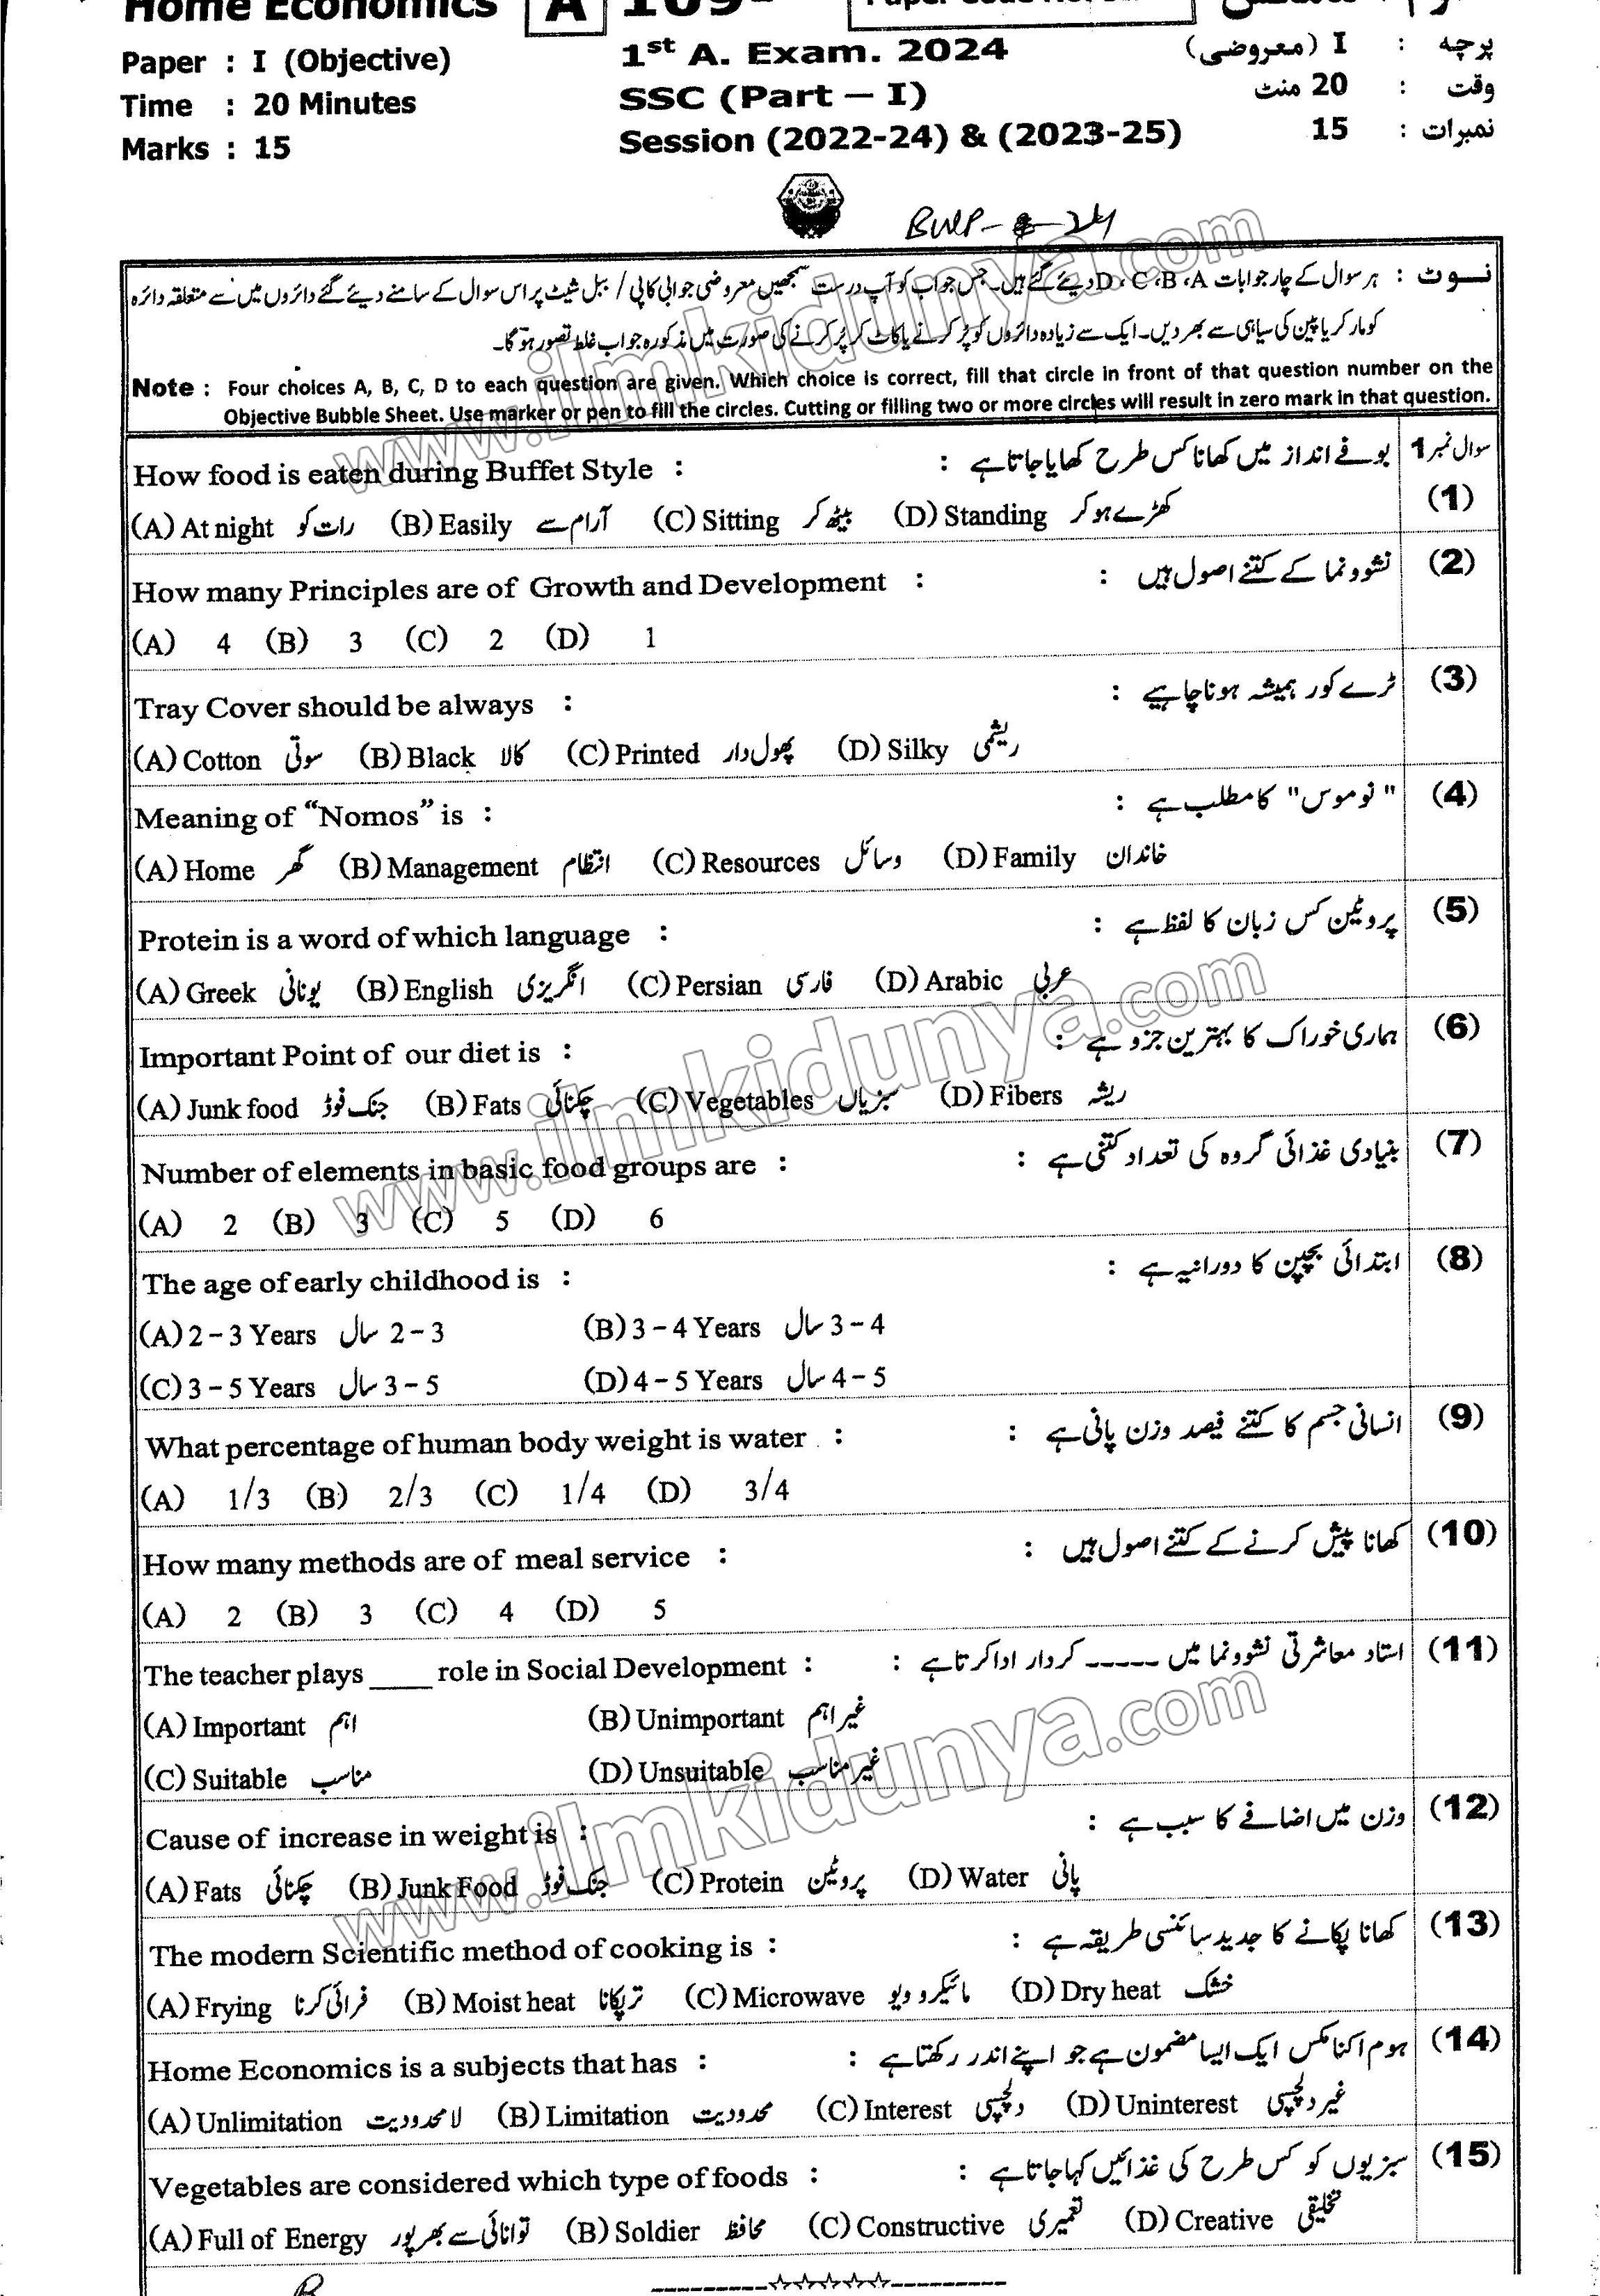 Home Economics A
Paper : I (Objective) 1st A. Exam. 2024 پرچہ : I (معروضی)
Time : 20 Minutes SSC (Part – I) وقت : 20 منٹ
Marks : 15 Session (2022-24) & (2023-25) نمبرات : 15
نوٹ : ہر سوال کے چار جوابات D، C، B، A دیئے گئے ہیں۔ جس جواب کو آپ درست سمجھیں معروضی جوابی کاپی / ببل شیٹ پر اس سوال کے سامنے دیئے گئے دائروں میں سے متعلقہ دائرہ
کو مارکر یا پین کی سیاہی سے بھر دیں۔ ایک سے زیادہ دائروں کو پُر کرنے یا کاٹ کر پُر کرنے کی صورت میں مذکورہ جواب غلط تصور ہوگا۔
Note : Four choices A, B, C, D to each question are given. Which choice is correct, fill that circle in front of that question number on the
Objective Bubble Sheet. Use marker or pen to fill the circles. Cutting or filling two or more circles will result in zero mark in that question.
How food is eaten during Buffet Style : بوفے انداز میں کھانا کس طرح کھایا جاتا ہے : سوال نمبر 1
(A) At night رات کو (B) Easily آرام سے (C) Sitting بیٹھ کر (D) Standing کھڑے ہو کر (1)
How many Principles are of Growth and Development : نشوونما کے کتنے اصول ہیں : (2)
(A) 4 (B) 3 (C) 2 (D) 1
Tray Cover should be always : ٹرے کور ہمیشہ ہونا چاہیے : (3)
(A) Cotton سوتی (B) Black کالا (C) Printed پھول دار (D) Silky ریشمی
Meaning of “Nomos” is : "نوموس" کا مطلب ہے : (4)
(A) Home گھر (B) Management انتظام (C) Resources وسائل (D) Family خاندان
Protein is a word of which language : پروٹین کس زبان کا لفظ ہے : (5)
(A) Greek یونانی (B) English انگریزی (C) Persian فارسی (D) Arabic عربی
Important Point of our diet is : ہماری خوراک کا بہترین جزو ہے : (6)
(A) Junk food جنک فوڈ (B) Fats چکنائی (C) Vegetables سبزیاں (D) Fibers ریشہ
Number of elements in basic food groups are : بنیادی غذائی گروہ کی تعداد کتنی ہے : (7)
(A) 2 (B) 3 (C) 5 (D) 6
The age of early childhood is : ابتدائی بچپن کا دورانیہ ہے : (8)
(A) 2 – 3 Years 2 – 3 سال (B) 3 – 4 Years 3 – 4 سال
(C) 3 – 5 Years 3 – 5 سال (D) 4 – 5 Years 4 – 5 سال
What percentage of human body weight is water : انسانی جسم کا کتنے فیصد وزن پانی ہے : (9)
(A) 1/3 (B) 2/3 (C) 1/4 (D) 3/4
How many methods are of meal service : کھانا پیش کرنے کے کتنے اصول ہیں : (10)
(A) 2 (B) 3 (C) 4 (D) 5
The teacher plays ____ role in Social Development : استاد معاشرتی نشوونما میں ----- کردار ادا کرتا ہے : (11)
(A) Important اہم (B) Unimportant غیر اہم
(C) Suitable مناسب (D) Unsuitable غیر مناسب
Cause of increase in weight is : وزن میں اضافے کا سبب ہے : (12)
(A) Fats چکنائی (B) Junk Food جنک فوڈ (C) Protein پروٹین (D) Water پانی
The modern Scientific method of cooking is : کھانا پکانے کا جدید سائنسی طریقہ ہے : (13)
(A) Frying فرائی کرنا (B) Moist heat تر پکانا (C) Microwave مائیکرو ویو (D) Dry heat خشک
Home Economics is a subjects that has : ہوم اکنامکس ایک ایسا مضمون ہے جو اپنے اندر رکھتا ہے : (14)
(A) Unlimitation لا محدودیت (B) Limitation محدودیت (C) Interest دلچسپی (D) Uninterest غیر دلچسپی
Vegetables are considered which type of foods : سبزیوں کو کس طرح کی غذائیں کہا جاتا ہے : (15)
(A) Full of Energy توانائی سے بھرپور (B) Soldier محافظ (C) Constructive تعمیری (D) Creative تخلیقی
www.ilmkidunya.com
www.ilmkidunya.com
www.ilmkidunya.com